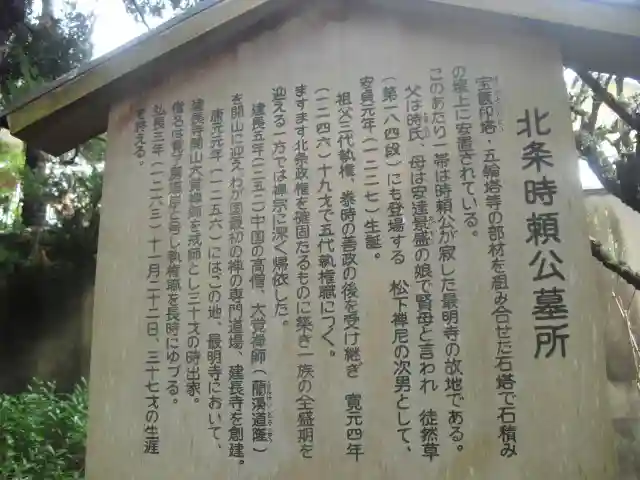 北条時頼公墓所
宝篋印塔・五輪塔等の部材を組み合せた石塔で石積み
の壇上に安置されている。
このあたり一帯は時頼公が寂した最明寺の故地である。
父は時氏、母は安達景盛の娘で賢母と言われ 徒然草
(第一八四段)にも登場する 松下禅尼の次男として、
安貞元年(一二二七)生誕。
祖父三代執権、泰時の善政の後を受け継ぎ 寛元四年
(一二四六)十九才で五代執権職につく。
ますます北条政権を確固たるものに築き一族の全盛期を
迎える一方では禅宗に深く帰依した。
建長五年(一二五三)中国の高僧、大覚禅師(蘭溪道隆)
を開山に迎えわが国最初の禅の専門道場、建長寺を創建。
康元元年(一二五六)にはこの地、最明寺において、
建長寺開山大覚禅師を戒師とし三十才の時出家。
僧名は覚了房道崇と号し執権職を長時にゆづる。
弘長三年(一二六三)十一月二十二日、三十七才の生涯
を終える。